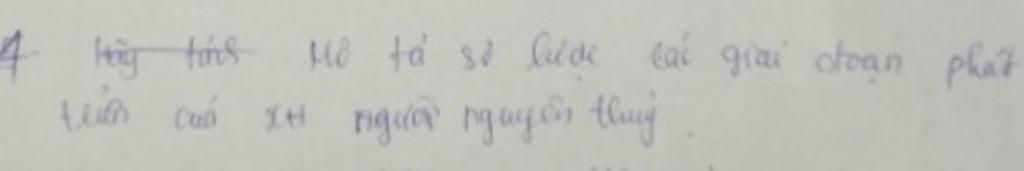 4 Hãy tính Mô tả sơ lược các giai đoạn phát
triển của XH người nguyên thuỷ.